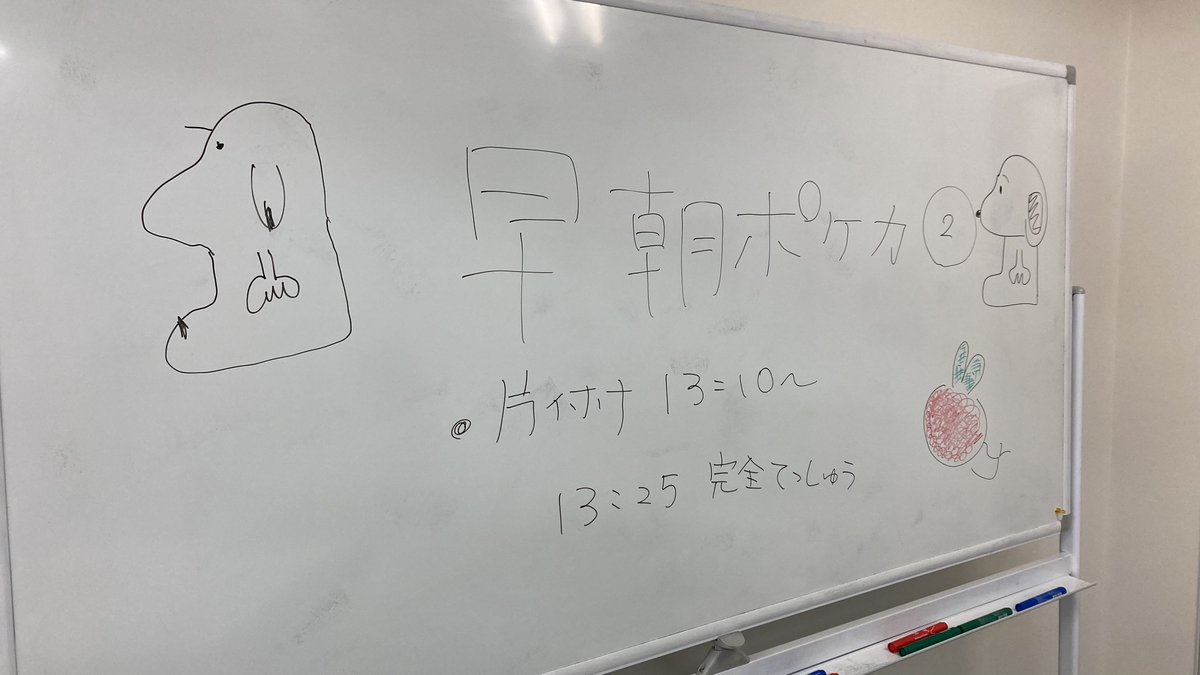 早朝ポケカ②
◎ 片付け 13:10~
13:25 完全てっしゅう